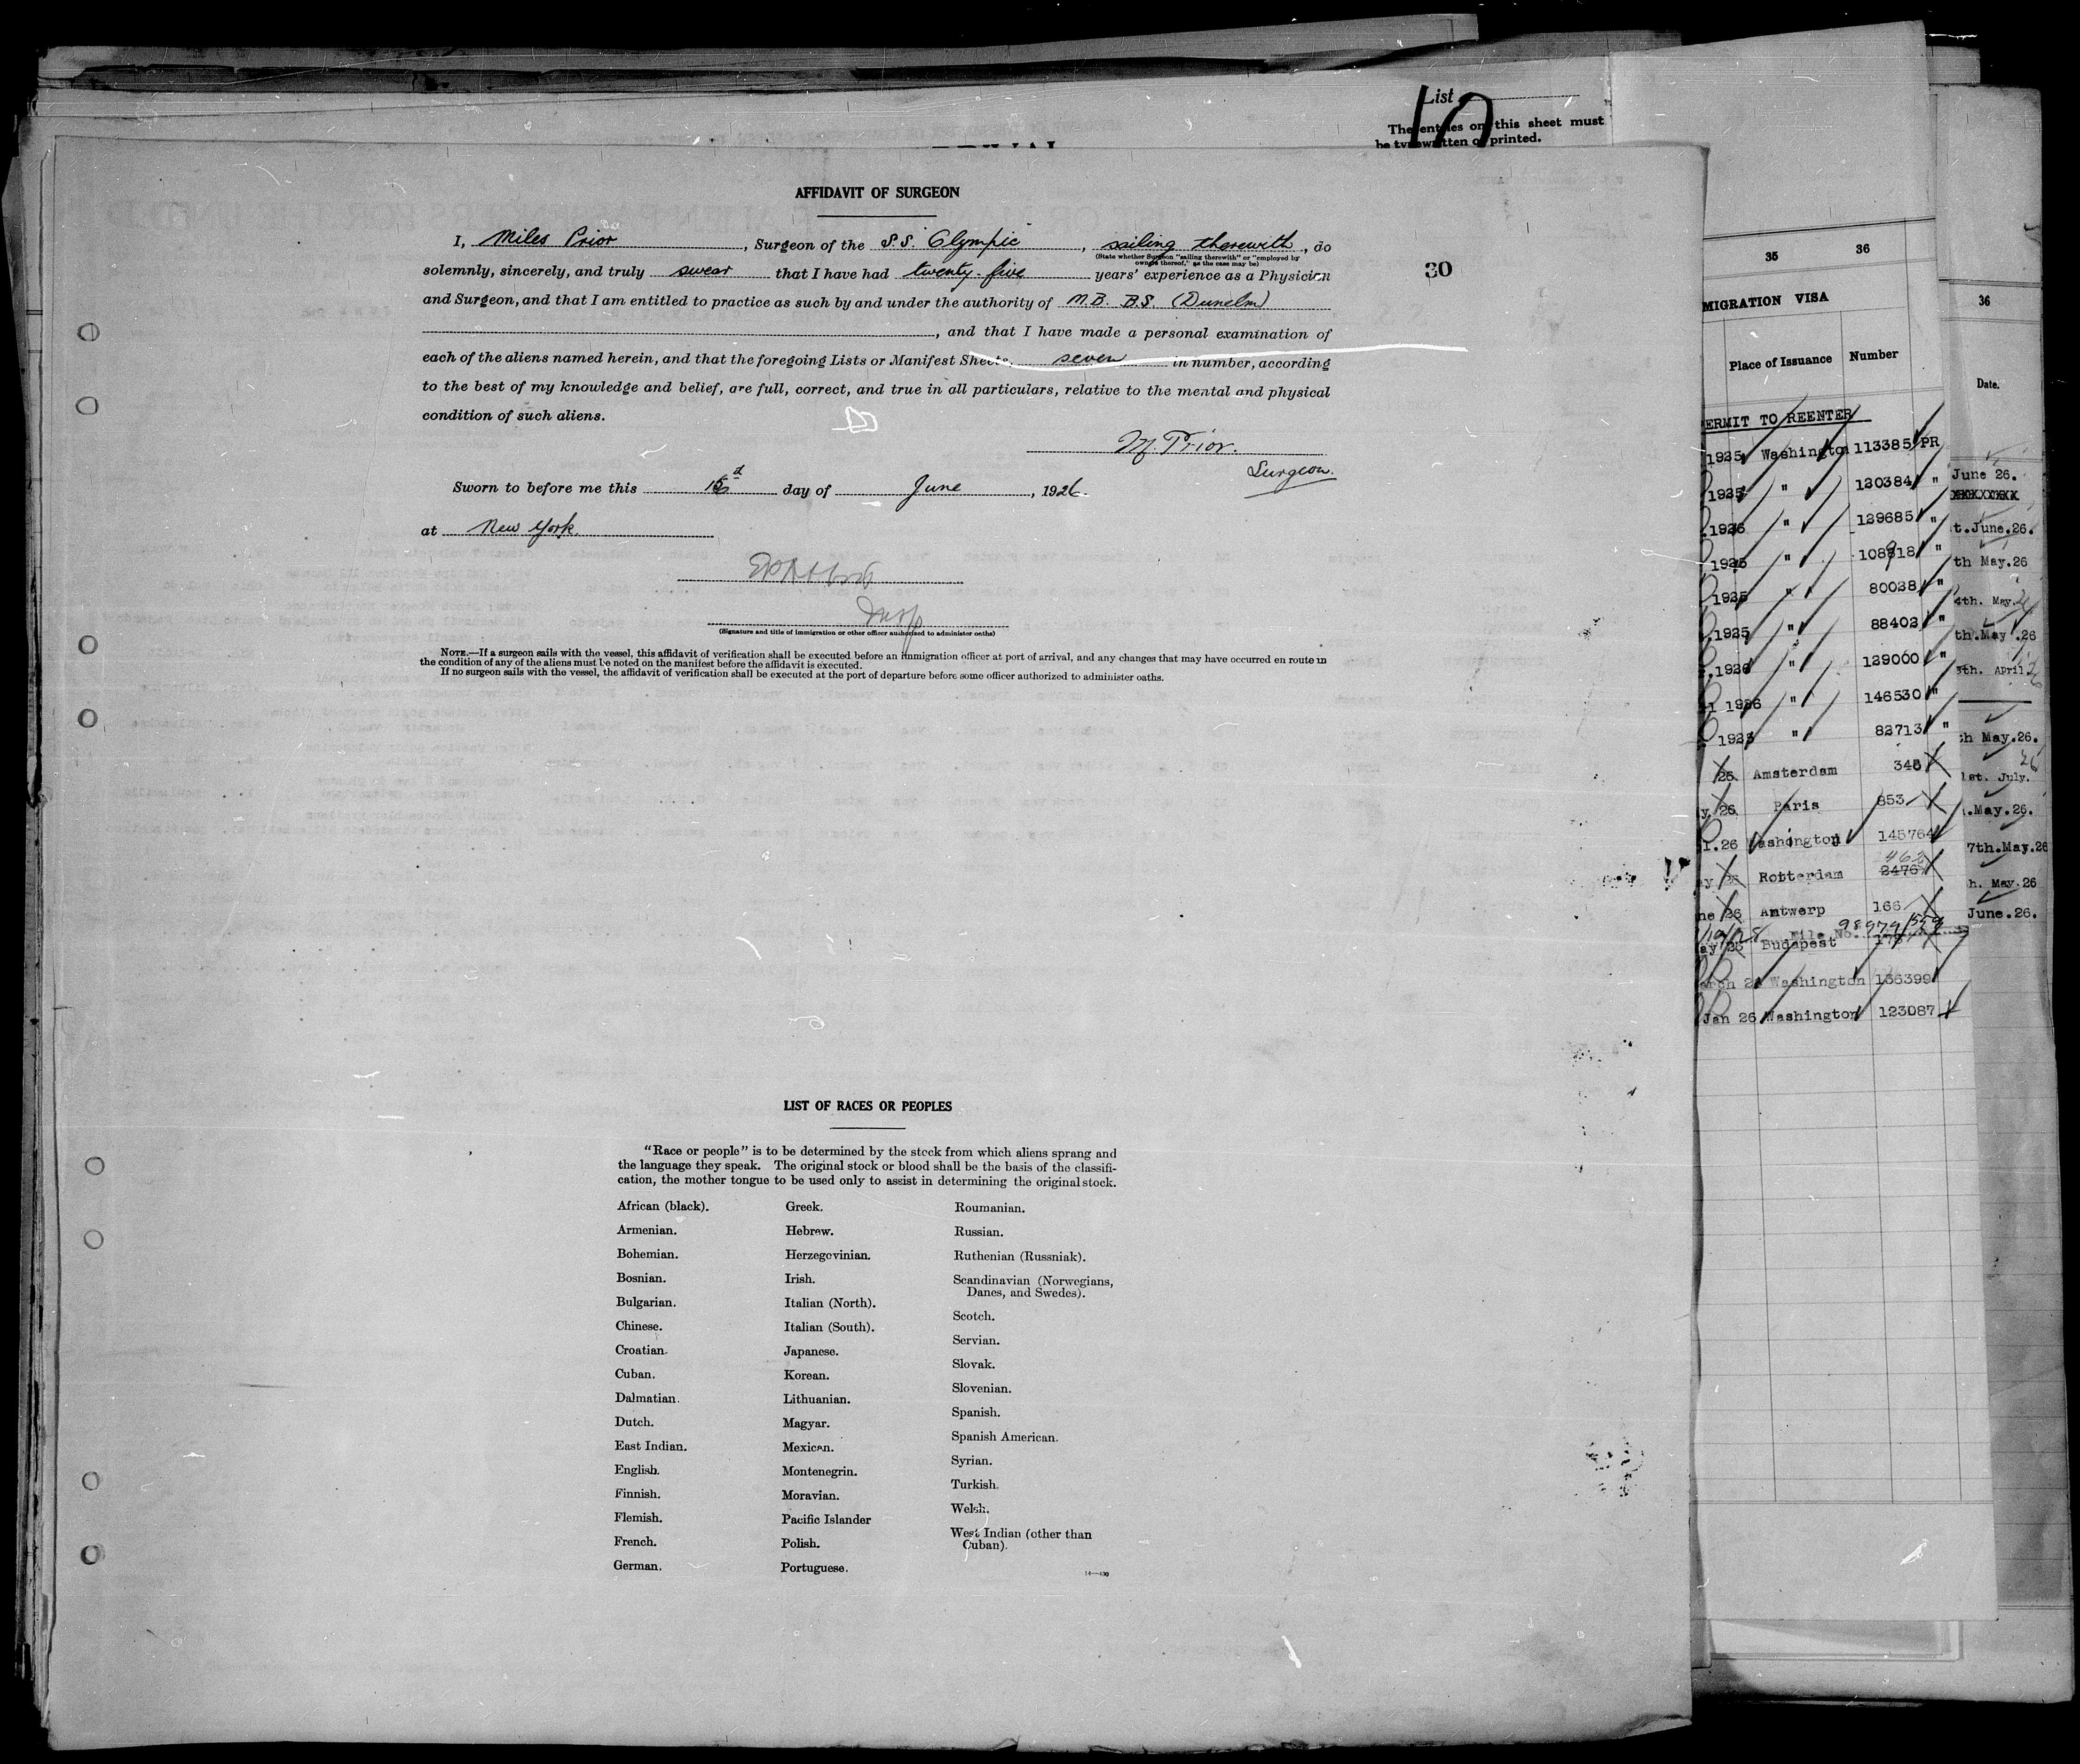 List
10
The entries on this sheet must
be typewritten or printed.
AFFIDAVIT OF SURGEON
I, Miles Prior, Surgeon of the S.S. Olympic, sailing therewith, do
(State whether Surgeon "sailing therewith" or "employed by
owners thereof," as the case may be)
30
solemnly, sincerely, and truly swear that I have had twenty-five years' experience as a Physician
and Surgeon, and that I am entitled to practice as such by and under the authority of M.B. B.S. (Dunelm)
, and that I have made a personal examination of
each of the aliens named herein, and that the foregoing Lists or Manifest Sheets, seven in number, according
to the best of my knowledge and belief, are full, correct, and true in all particulars, relative to the mental and physical
condition of such aliens.
M. Prior.
Surgeon.
Sworn to before me this day of June, 1926.
at New York.
Insp
(Signature and title of immigration or other officer authorized to administer oaths)
NOTE.—If a surgeon sails with the vessel, this affidavit of verification shall be executed before an immigration officer at port of arrival, and any changes that may have occurred en route in
the condition of any of the aliens must be noted on the manifest before the affidavit is executed.
If no surgeon sails with the vessel, the affidavit of verification shall be executed at the port of departure before some officer authorized to administer oaths.
LIST OF RACES OR PEOPLES
"Race or people" is to be determined by the stock from which aliens sprang and
the language they speak. The original stock or blood shall be the basis of the classifi-
cation, the mother tongue to be used only to assist in determining the original stock.
African (black).
Armenian.
Bohemian.
Bosnian.
Bulgarian.
Chinese.
Croatian.
Cuban.
Dalmatian.
Dutch.
East Indian.
English.
Finnish.
Flemish.
French.
German.
Greek.
Hebrew.
Herzegovinian.
Irish.
Italian (North).
Italian (South).
Japanese.
Korean.
Lithuanian.
Magyar.
Mexican.
Montenegrin.
Moravian.
Pacific Islander
Polish.
Portuguese.
Roumanian.
Russian.
Ruthenian (Russniak).
Scandinavian (Norwegians,
Danes, and Swedes).
Scotch.
Servian.
Slovak.
Slovenian.
Spanish.
Spanish American.
Syrian.
Turkish.
Welsh.
West Indian (other than
Cuban).
35 36
MIGRATION VISA
Place of Issuance Number
ERMIT TO REENTER
1925 Washington 113385 PR
1925 " 120384 "
1926 " 129685 "
1925 " "
1925 " 80038 "
1925 " 88402 "
1926 " 129000 "
1926 " 146530 "
1925 " 82713 "
26 Amsterdam 348
y 26 Paris 853
26 Washington 145764
Rotterdam 2476
ne 26 Antwerp 166
File No. 98979/559
ay 26 Budapest
arch 2 Washington 136399
Jan 26 Washington 123087
36
Date.
June 26.
t.June.26.
th May.26
4th. May.26
th.May.26
th. April.26
h May.26.
1st. July. 26
.May.26.
7th.May.26
h. May.26
June.26.